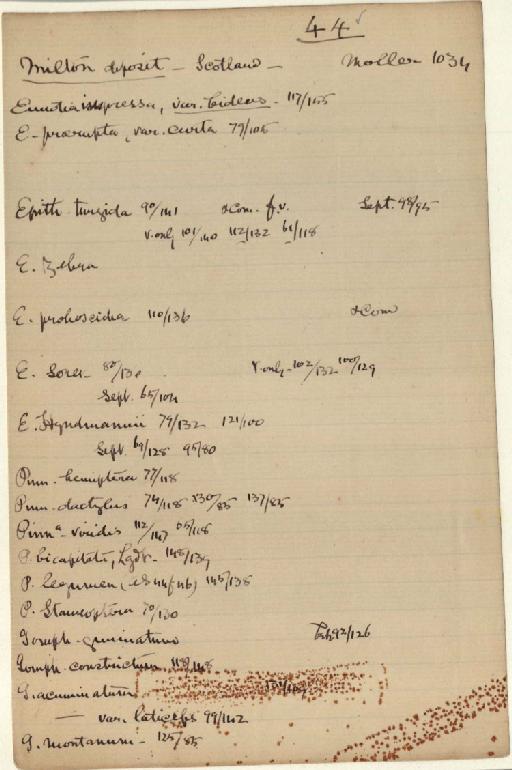 44
Milton deposit - Scotland - Moller 1034
Eunotia impressa, var. bidens - 117/155
E. praerupta, var. curta 79/105
Epith turgida 90/141 & com. f.v. Sept. 98/95
v. only 101/140 112/132 61/118
E. Zebra
E. proboscidia 110/136 & com
E. Sorex - 80/130 v. only - 102/132 100/129
Sept. 65/104
E. Hyndmannii 79/132 121/100
Sept. 69/128 95/80
Pinn. hemiptera 77/118
Pinn. dactylus 74/118 130/85 137/85
Pinnª viridis 112/147 65/118
P. bicapitata, Lgdst - 148/139
P. legumen 145/138
P. Stauroptera 70/130
Gomph - geminatum 92/126
Gomph constrictum
G. acuminatum
— var. laticeps 99/142
G. montanum - 125/85